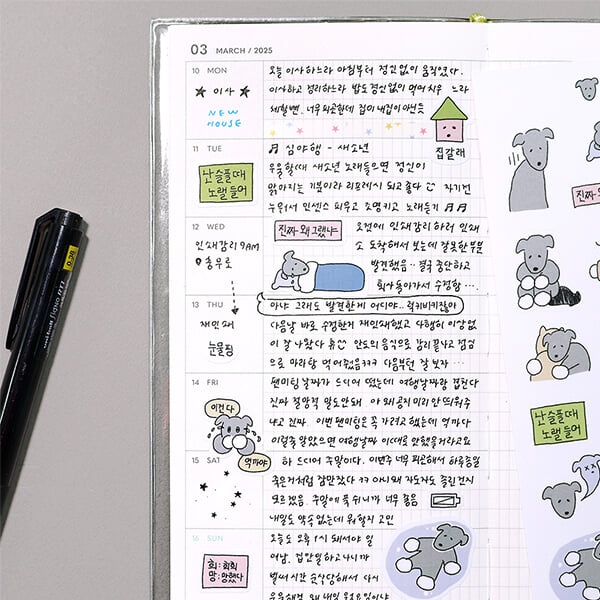 03 MARCH / 2025
10 MON
이사
NEW HOUSE
오늘 이사하느라 아침부터 정신없이 움직였다.
이사하고 정리하느라 밥도 정신없이 먹어치우느라
체할뻔.. 너무 피곤한데 집이 내집이 아닌듯
집갈래
11 TUE
난 슬플때
노랠 들어
♬ 심야행 - 새소년
우울할때 새소년 노래들으면 정신이
맑아지는 기분이라 리프레시 되고 좋다 자기전
누워서 인센스 피우고 조명키고 노래듣기 ♬♬
12 WED
인쇄감리 9AM
충무로
진짜 왜 그랬냐
오전에 인쇄감리하러 인쇄
소 도착해서 보는데 잘못한부분
발견했음.. 결국 중단하고
회사돌아가서 수정함 ...
13 THU
재인쇄
눈물핑
아냐 그래도 발견한게 어디야.. 럭키비키잖아
다음날 바로 수정한거 재인쇄했고 다행히 이상없
이 잘 나왔다 휴 안도의 음식으로 감리끝나고 점심
으로 마라탕 먹어줬음ㅋㅋㅋ 다음부턴 잘 보자 ...
14 FRI
이건 다
억까야
팬미팅 날짜가 드디어 떴는데 여행날짜랑 겹친다
진짜 절망적 말도안돼 아 왜 공지 미리 안 띄워주
냐고 진짜 이번 팬미팅은 꼭 가려고 했는데 억까다
이럴줄 알았으면 여행날짜 이때로 안했을거라고요
15 SAT
하 드디어 주말이다. 이번주 너무 피곤해서 하루종일
죽은거처럼 잠만잤다 ㅋㅋ 아니 왜 자도자도 졸린건지
모르겠음. 주말에 푹 쉬니까 너무 좋음
내일도 약속없는데 뭐할지 고민
16 SUN
회 : 회회
망 : 망했다
오늘도 오후 1시 돼서야 일
어남. 집안일하고나니까
벌써 시간 순삭당해서 다시
진짜 왜
난 슬플때
노랠 들어